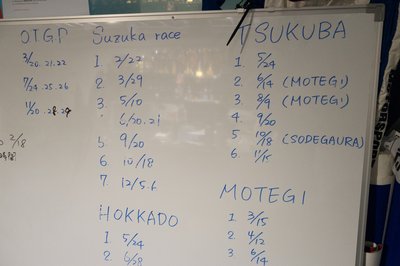 OTGP
3/20.21.22
7/24.25.26
11/20.28.29
2/18
時間
Suzuka race
1. 2/22
2. 3/29
3. 5/10
6/20.21
5. 9/20
6. 10/18
7. 12/5.6
HOKKADO
1 5/24
2. 6/28
TSUKUBA
1. 5/24
2. 6/14 (MOTEGI)
3. 8/9 (MOTEGI)
4. 9/20
5. 10/18 (SODEGAURA)
6. 11/15
MOTEGI
1 3/15
2. 4/12
3. 6/14